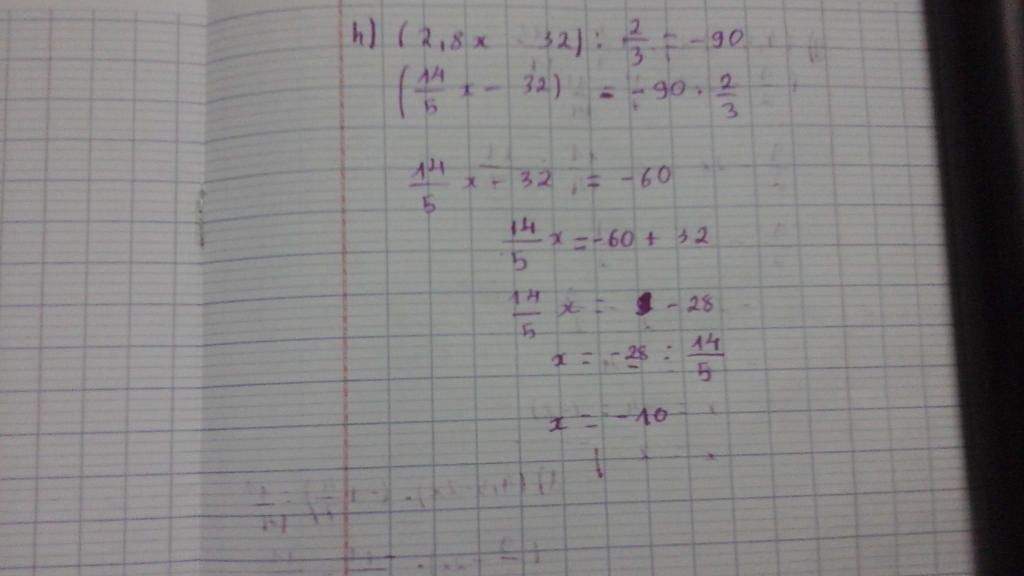 h) (2,8x 32) : 2/3 = -90
(14/5 x - 32) = -90 . 2/3
14/5 x - 32 = -60
14/5 x = -60 + 32
14/5 x = - 28
x = -28 : 14/5
x = -10